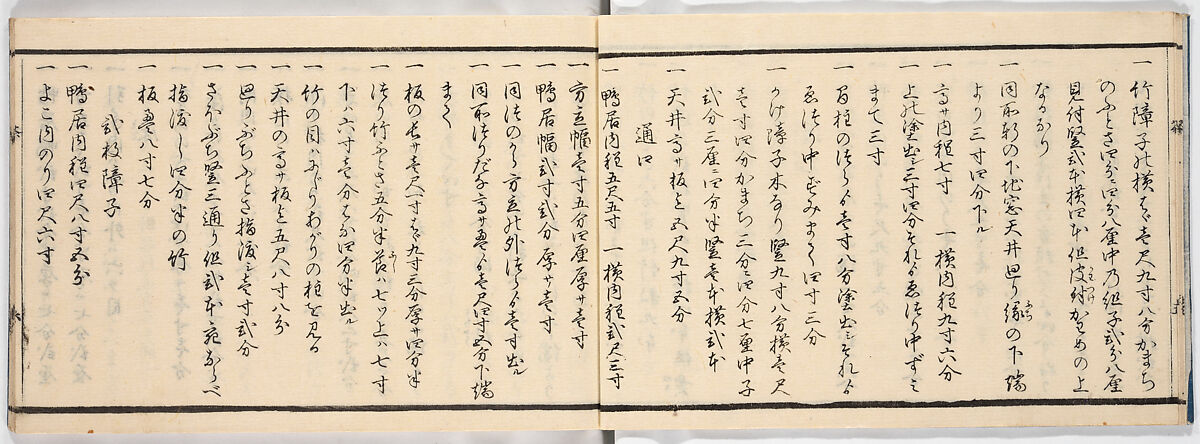 一 竹障子れ横はゝ壱尺九寸八分かまち
のふとさ四分ニ四分八厘中乃組子弐分八厘
見付竪弐本横四本但皮付かわめの上
なかより
一 同所軒の下地窓天井廻り縁の下端
より三寸四分下ル
一 高サ内程七寸 一 横内程九寸六分
一 上れ塗出シ三寸四分それよりゑつり中すミ
まて三寸
一 角柱のつらより壱寸八分塗出シそれより
ゑつり中すみまて四寸三分
一 かけ障子木なり竪九寸八分横壱尺
壱寸四分かまち三分ニ四分七厘中子
弐分三厘ニ四分半竪壱本横弐本
一 天井高サ板上五尺九寸五分
通口
一 鴨居内程五尺五寸 一 横内程弐尺三寸
一 方立幅壱寸五分四厘厚サ壱寸
一 鴨居幅弐寸弐分厚サ壱寸
一 同つのら方立れ外つらより壱寸出ル
一 同所つりだな高サ畳より壱尺四寸五分下端
まて
一 板の長サ壱尺一寸はゝ九寸三分厚サ四分半
一 つり竹ふとさ五分半節ハ七ツ上ハ七寸
下ハ六寸壱分はな四分半出ル
一 竹の目ハみぎりあがりの柱を見る
一 天井の高サ板上五尺八寸八分
一 廻りぶちふとさ指渡シ壱寸弐分
一 さほぶち竪三通り但弐本宛ならべ
指渡シ四分半の竹
一 板畳八寸七分
弐枚障子
一 鴨居内程四尺八寸五分
一 よこ内のり四尺六寸